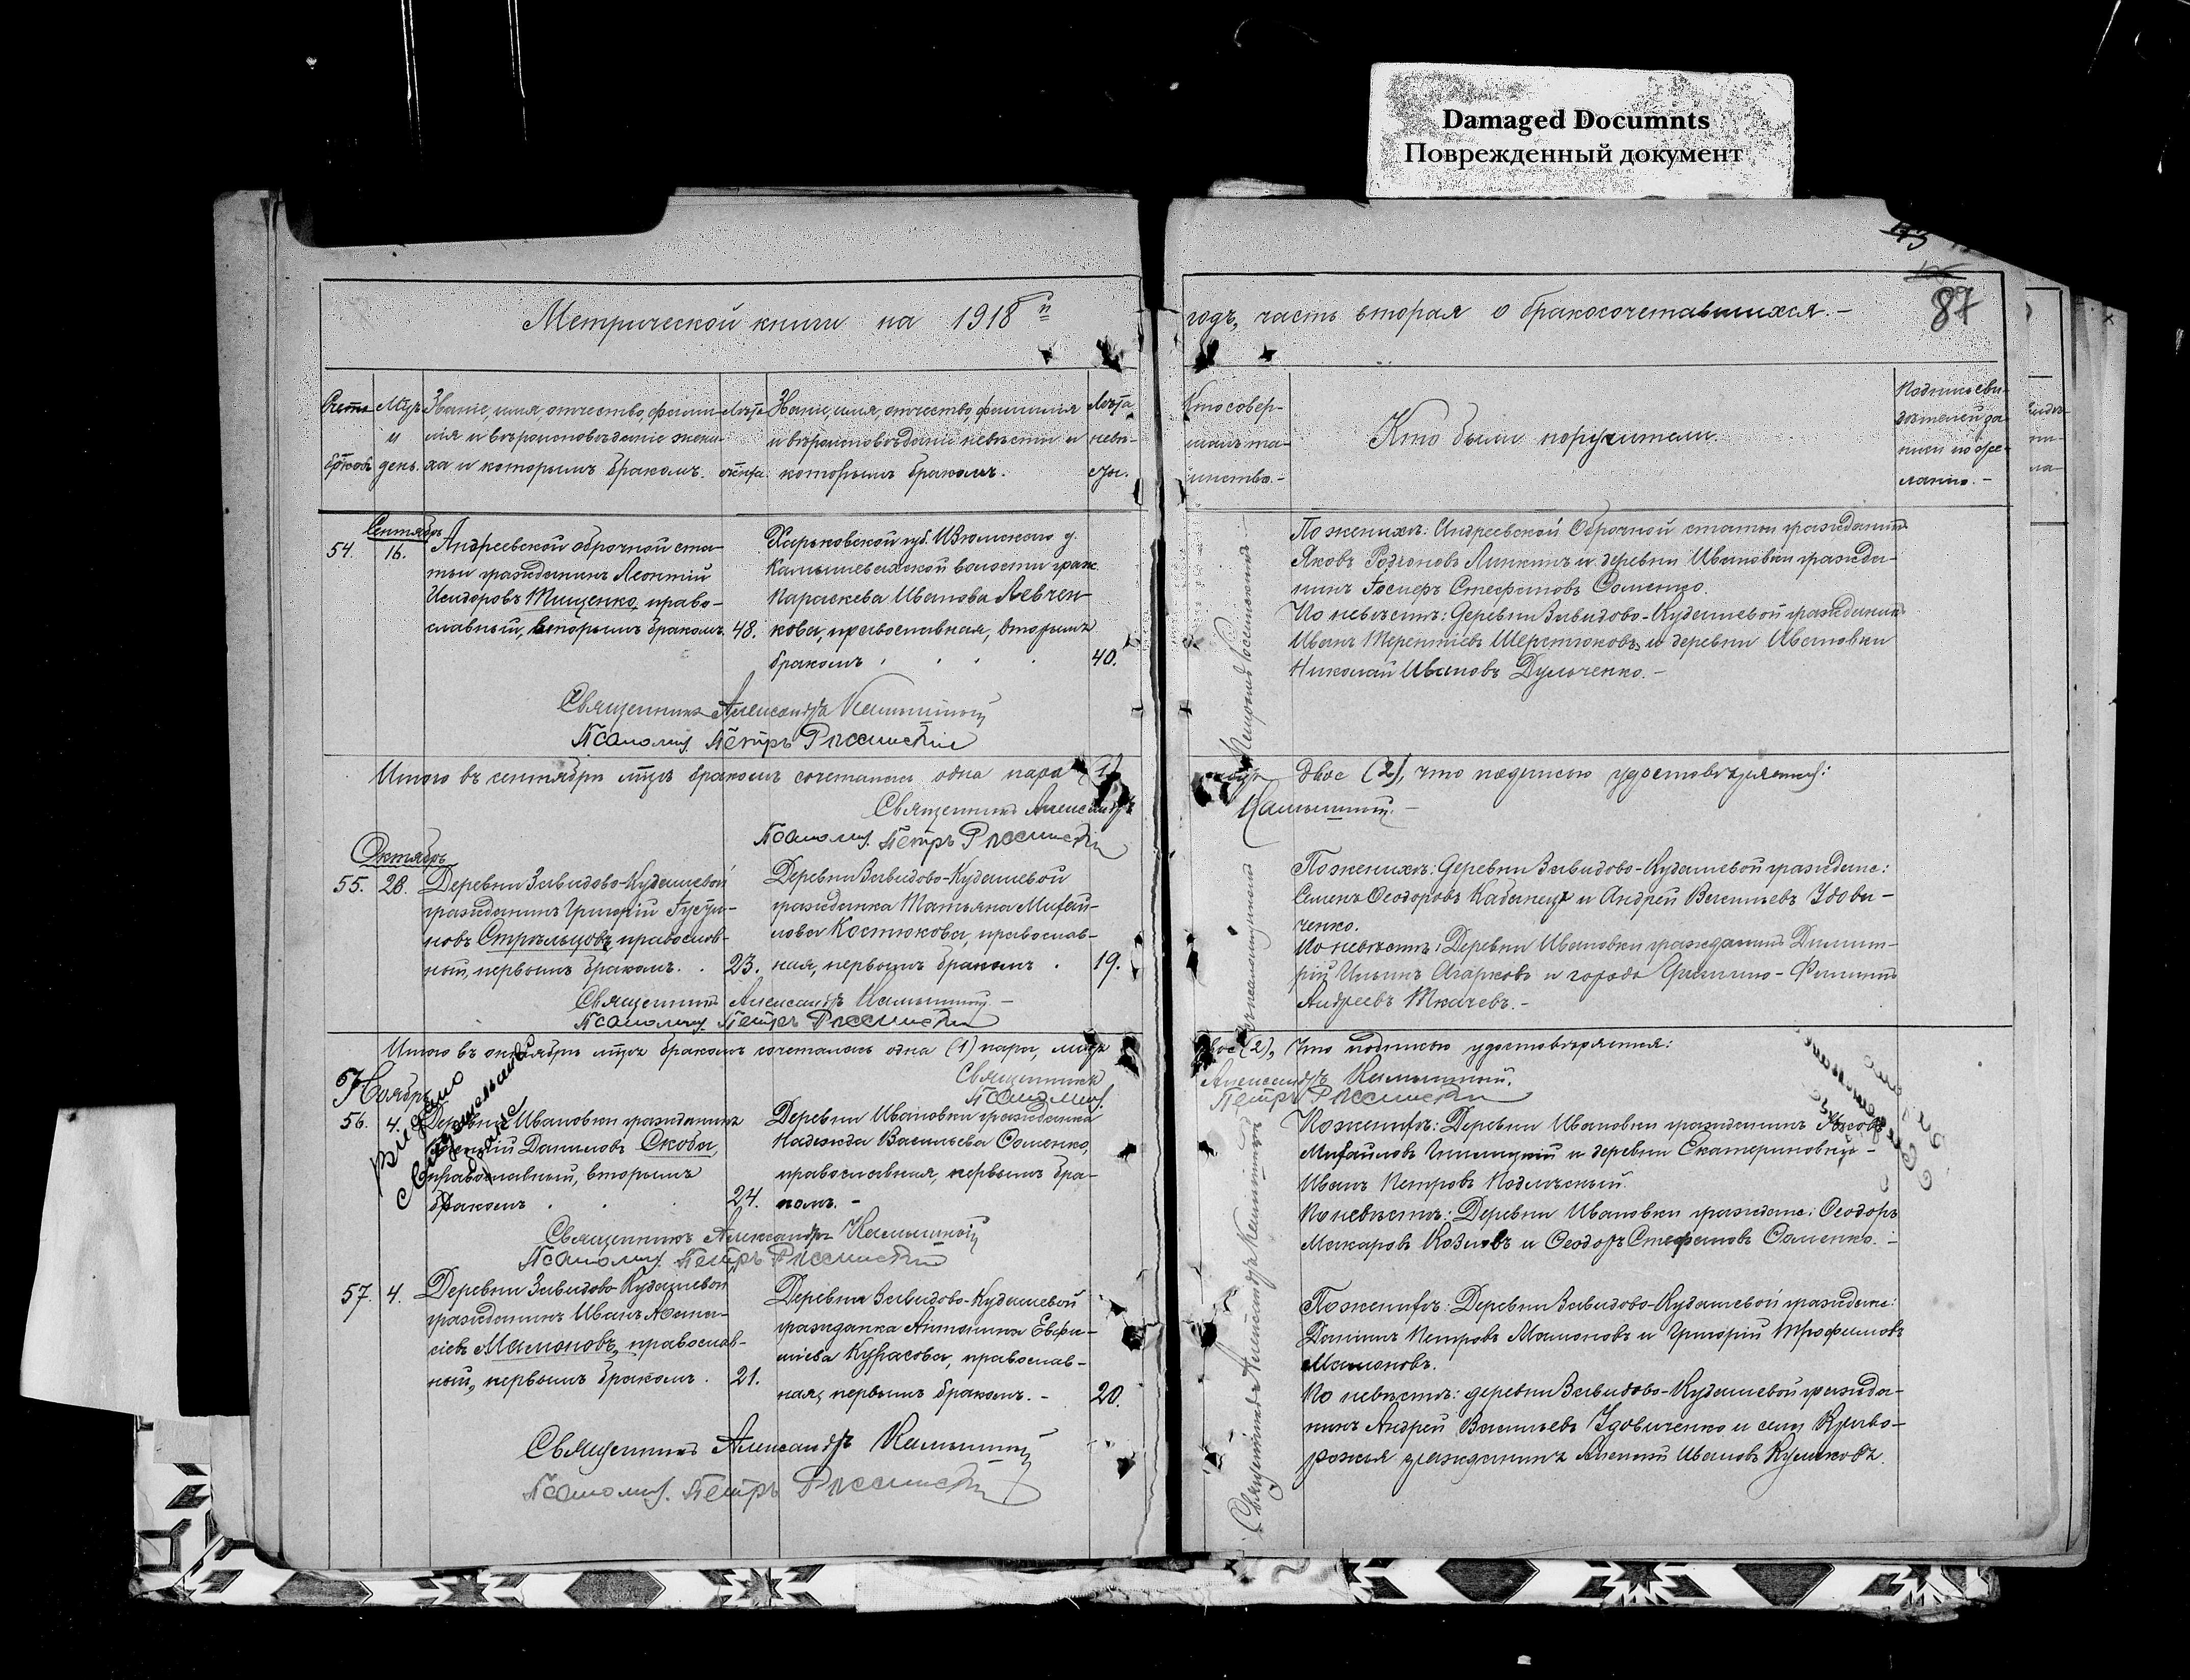 Damaged Documnts
Поврежденный документ
87
Метрической книги на 1918 й
годъ, часть вторая о бракосочетавшихся. –
Счетъ браковъ
Мѣс. и день.
Званіе, имя, отчество, фами-
лія и вѣроисповѣданіе жени-
ха и которымъ бракомъ.
Лѣта жениха.
Званіе, имя, отчество, фамилія
и вѣроисповѣданіе невѣсты и
которымъ бракомъ.
Лѣта невѣ-
сты.
Кто совер-
шалъ та-
инство. –
Кто были поручители.
Подпись сви-
дѣтелей за-
писи по же-
ланію. –
Сентябрь
54. 16.
Андреевской оброчной ста-
тьи гражданинъ Леонтій
Исидоровъ Тищенко, право-
славный, вторымъ бракомъ. 48.
Харьковской губ. Изюмскаго у.
Камышевахской волости граж.
Параскева Иванова Левчен-
кова, православная, вторымъ
бракомъ 40.
По женихѣ: Андреевской Оброчной статьи гражданинъ
Яковъ Родіоновъ и деревни Ивановки гражда-
нинъ Іосифъ Стефановъ Фоменко.
По невѣстѣ: Деревни Завидово-Кудашевой гражданинъ
Иванъ Терентіевъ Шерстюковъ и деревни Ивановки
Николай Ивановъ Дульченко. –
Священникъ Александръ
Псаломщ. Петръ
Итого въ сентябрѣ мѣсяцѣ бракомъ сочеталась одна пара (1)
двое (2), что подписью удостовѣряется:
Священникъ Александръ
Псаломщ. Петръ
Октябрь
55. 28.
Деревни Завидово-Кудашевой
гражданинъ Григорій Густи-
новъ Стрѣльцовъ, православ-
ный, первымъ бракомъ. 23.
Деревни Завидово-Кудашевой
гражданка Татьяна Михай-
лова Костюкова, православ-
ная, первымъ бракомъ 19.
По женихѣ: Деревни Завидово-Кудашевой граждане:
Семенъ Феодоровъ Кабанецъ и Андрей Васильевъ Удови-
ченко.
По невѣстѣ: Деревни Ивановки гражданинъ Димит-
рій Ильинъ Агарковъ и города Гришино – Филиппъ
Андреевъ Ткачевъ. –
Священникъ Александръ
Псаломщ. Петръ
Итого въ октябрѣ мѣсяцѣ бракомъ сочеталась одна (1) пара, лицъ
двое (2), что подписью удостовѣряется:
Священникъ Александръ
Псаломщ. Петръ
Ноябрь
56. 4.
Деревни Ивановки гражданинъ
Даниловъ Скоба,
православный, вторымъ
бракомъ 24.
Деревни Ивановки гражданка
Надежда Васильева Фоменко,
православная, первымъ бра-
комъ. –
По женихѣ: Деревни Ивановки гражданинъ Яковъ
Михайловъ и деревни Екатериновки –
Иванъ Петровъ Подлѣсный.
По невѣстѣ: Деревни Ивановки граждане: Феодоръ
Макаровъ Козловъ и Феодоръ Стефановъ Фоменко. –
Священникъ Александръ
Псаломщ. Петръ
57. 4.
Деревни Завидово-Кудашевой
гражданинъ Иванъ Афана-
сіевъ Мамоновъ, православ-
ный, первымъ бракомъ. 21.
Деревни Завидово-Кудашевой
гражданка Антонина Евфи-
міева Курасова, православ-
ная, первымъ бракомъ. – 20.
По женихѣ: Деревни Завидово-Кудашевой граждане:
Даніилъ Петровъ Мамоновъ и Григорій Трофимовъ
Мамоновъ.
По невѣстѣ: деревни Завидово-Кудашевой гражда-
нинъ Андрей Васильевъ Удовиченко и села Криво-
рожья гражданинъ Алексій Ивановъ Куликовъ.
Священникъ Александръ
Псаломщ. Петръ